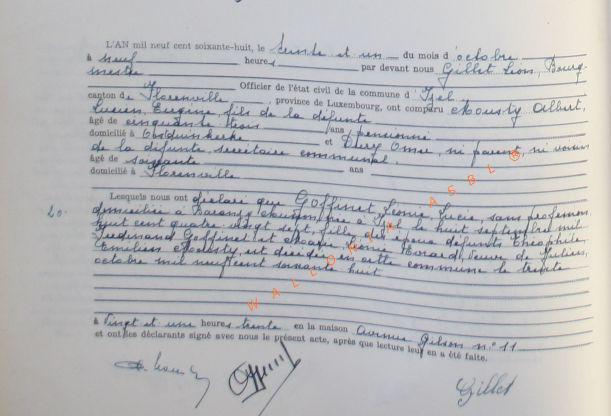 L'AN mil neuf cent soixante-huit, le trente et un du mois d'octobre
à neuf heures par devant nous Gillet Léon, Bourg-
mestre Officier de l'état civil de la commune d'Izel
canton de Florenville, province de Luxembourg, ont comparu Mousty Albert,
Lucien, Eugène, fils de la défunte
âgé de cinquante trois ans, pensionné
domicilié à Oostduinkerke et Omer, ni parent, ni voisin
de la défunte, secrétaire communal,
âgé de soixante ans
domicilié à Florenville
Lesquels nous ont déclaré que Goffinet Léonie, Lucie, sans profession,
20.
domiciliée à née à Izel le huit septembre mil
huit cent quatre vingt sept, fille des époux défunts Théophile,
Ferdinand Goffinet et Léonie Evrard, veuve de Julien,
Emilien Mousty, est décédée en cette commune le trente
octobre mil neuf cent soixante huit
à vingt et une heures trente en la maison avenue Gilson n° 11
et ont les déclarants signé avec nous le présent acte, après que lecture leur en a été faite.
Gillet
WALLONIA ASBL ®